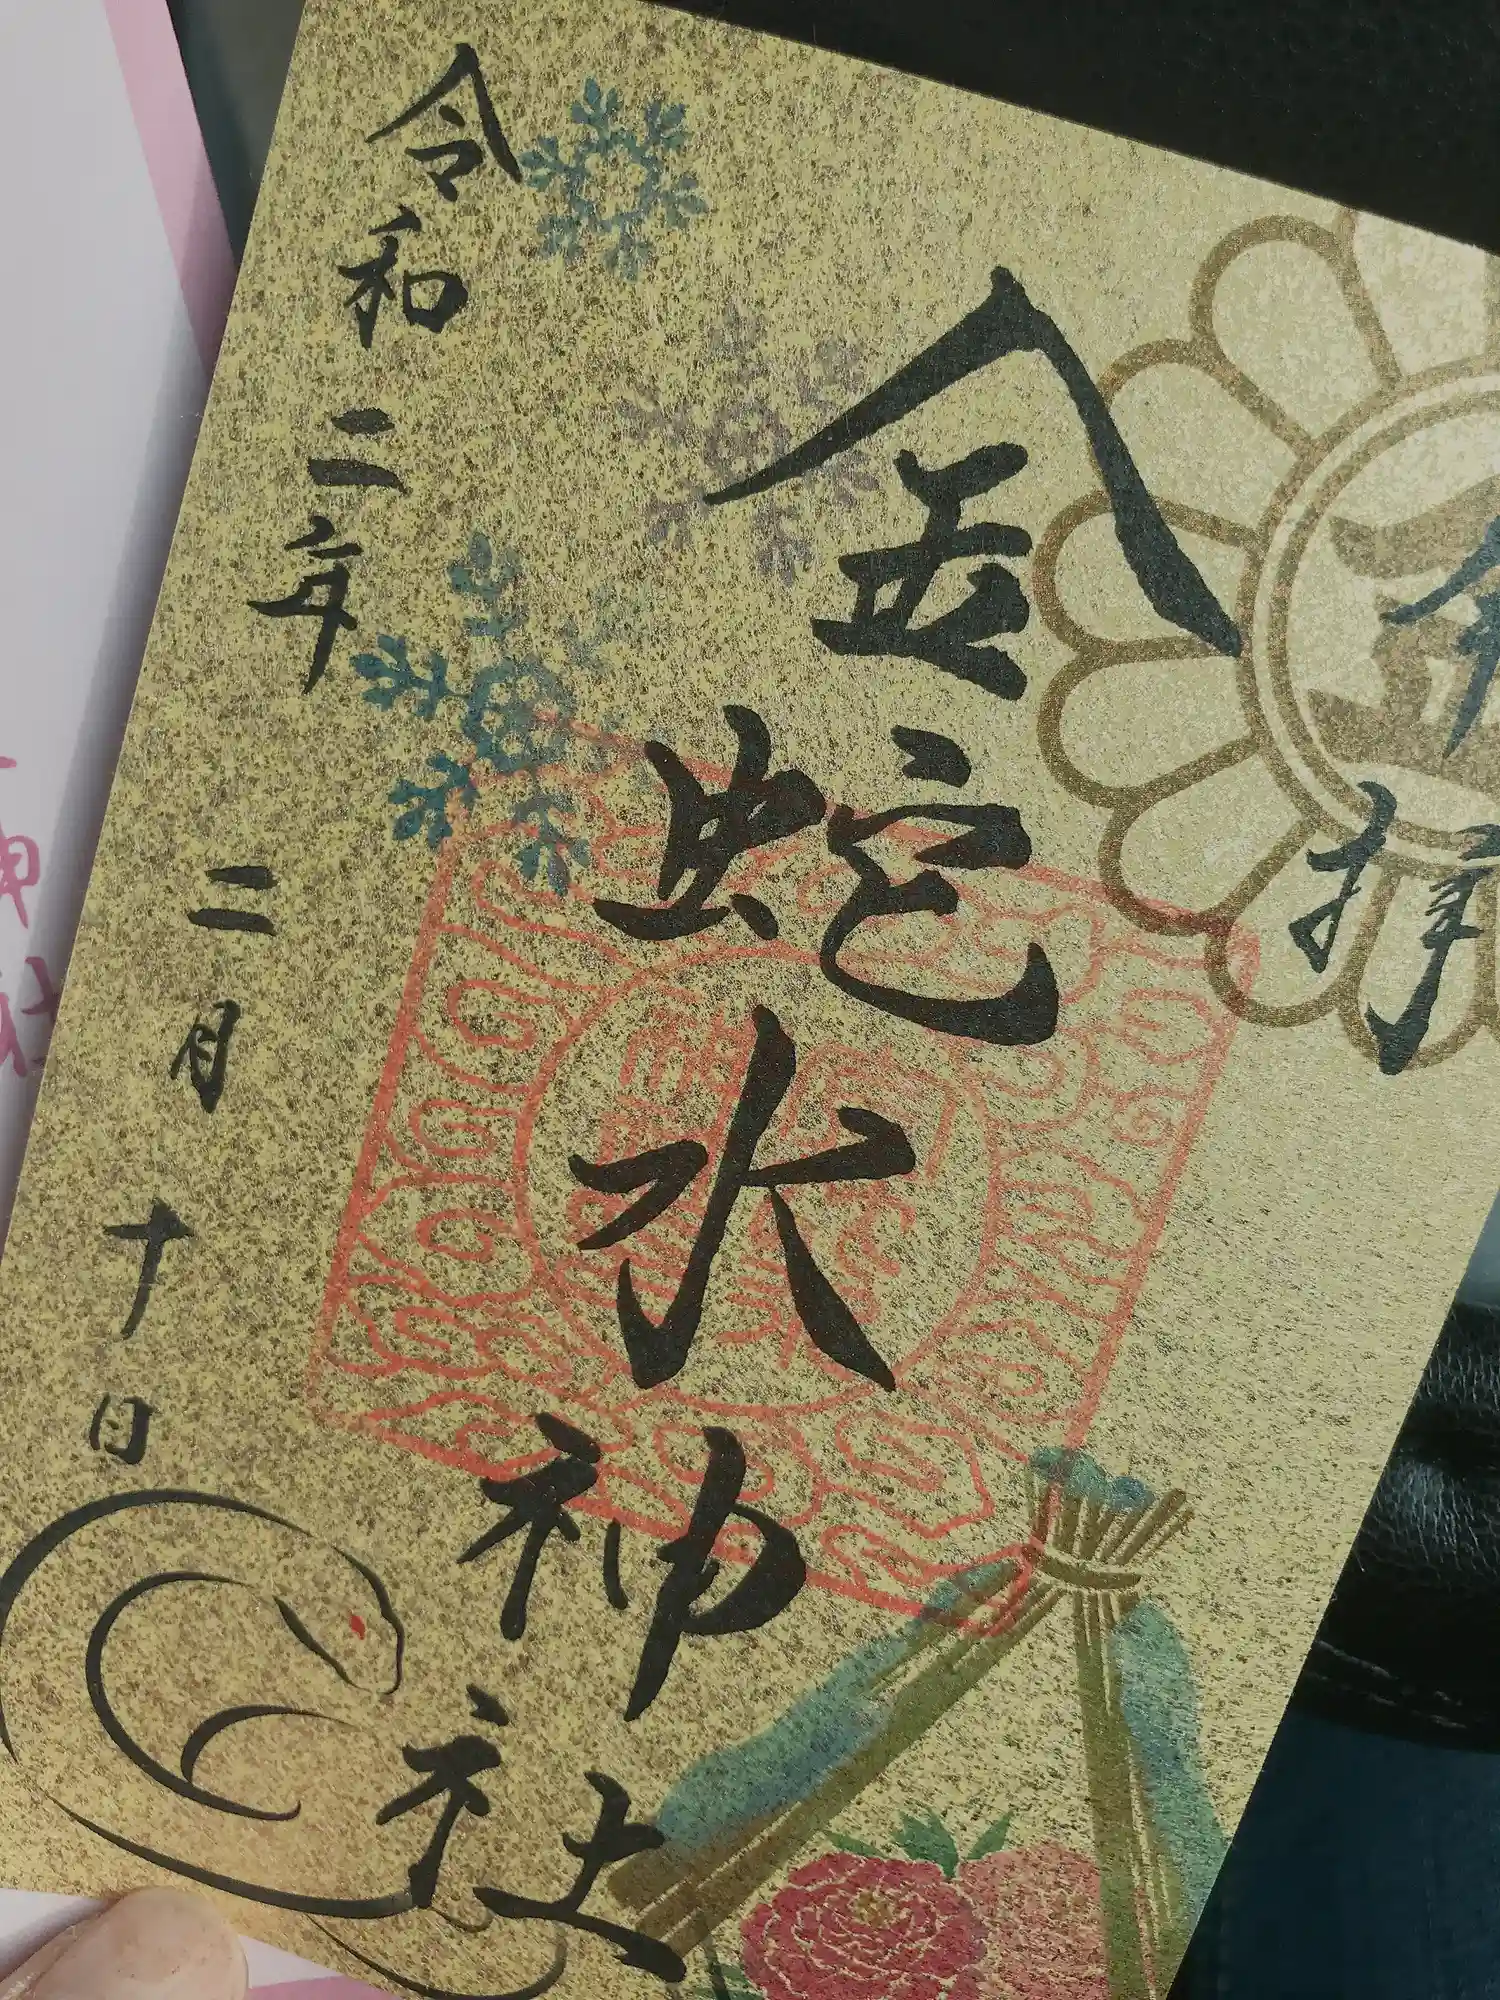 奉拝
金蛇水神社
令和二年二月十日
神社